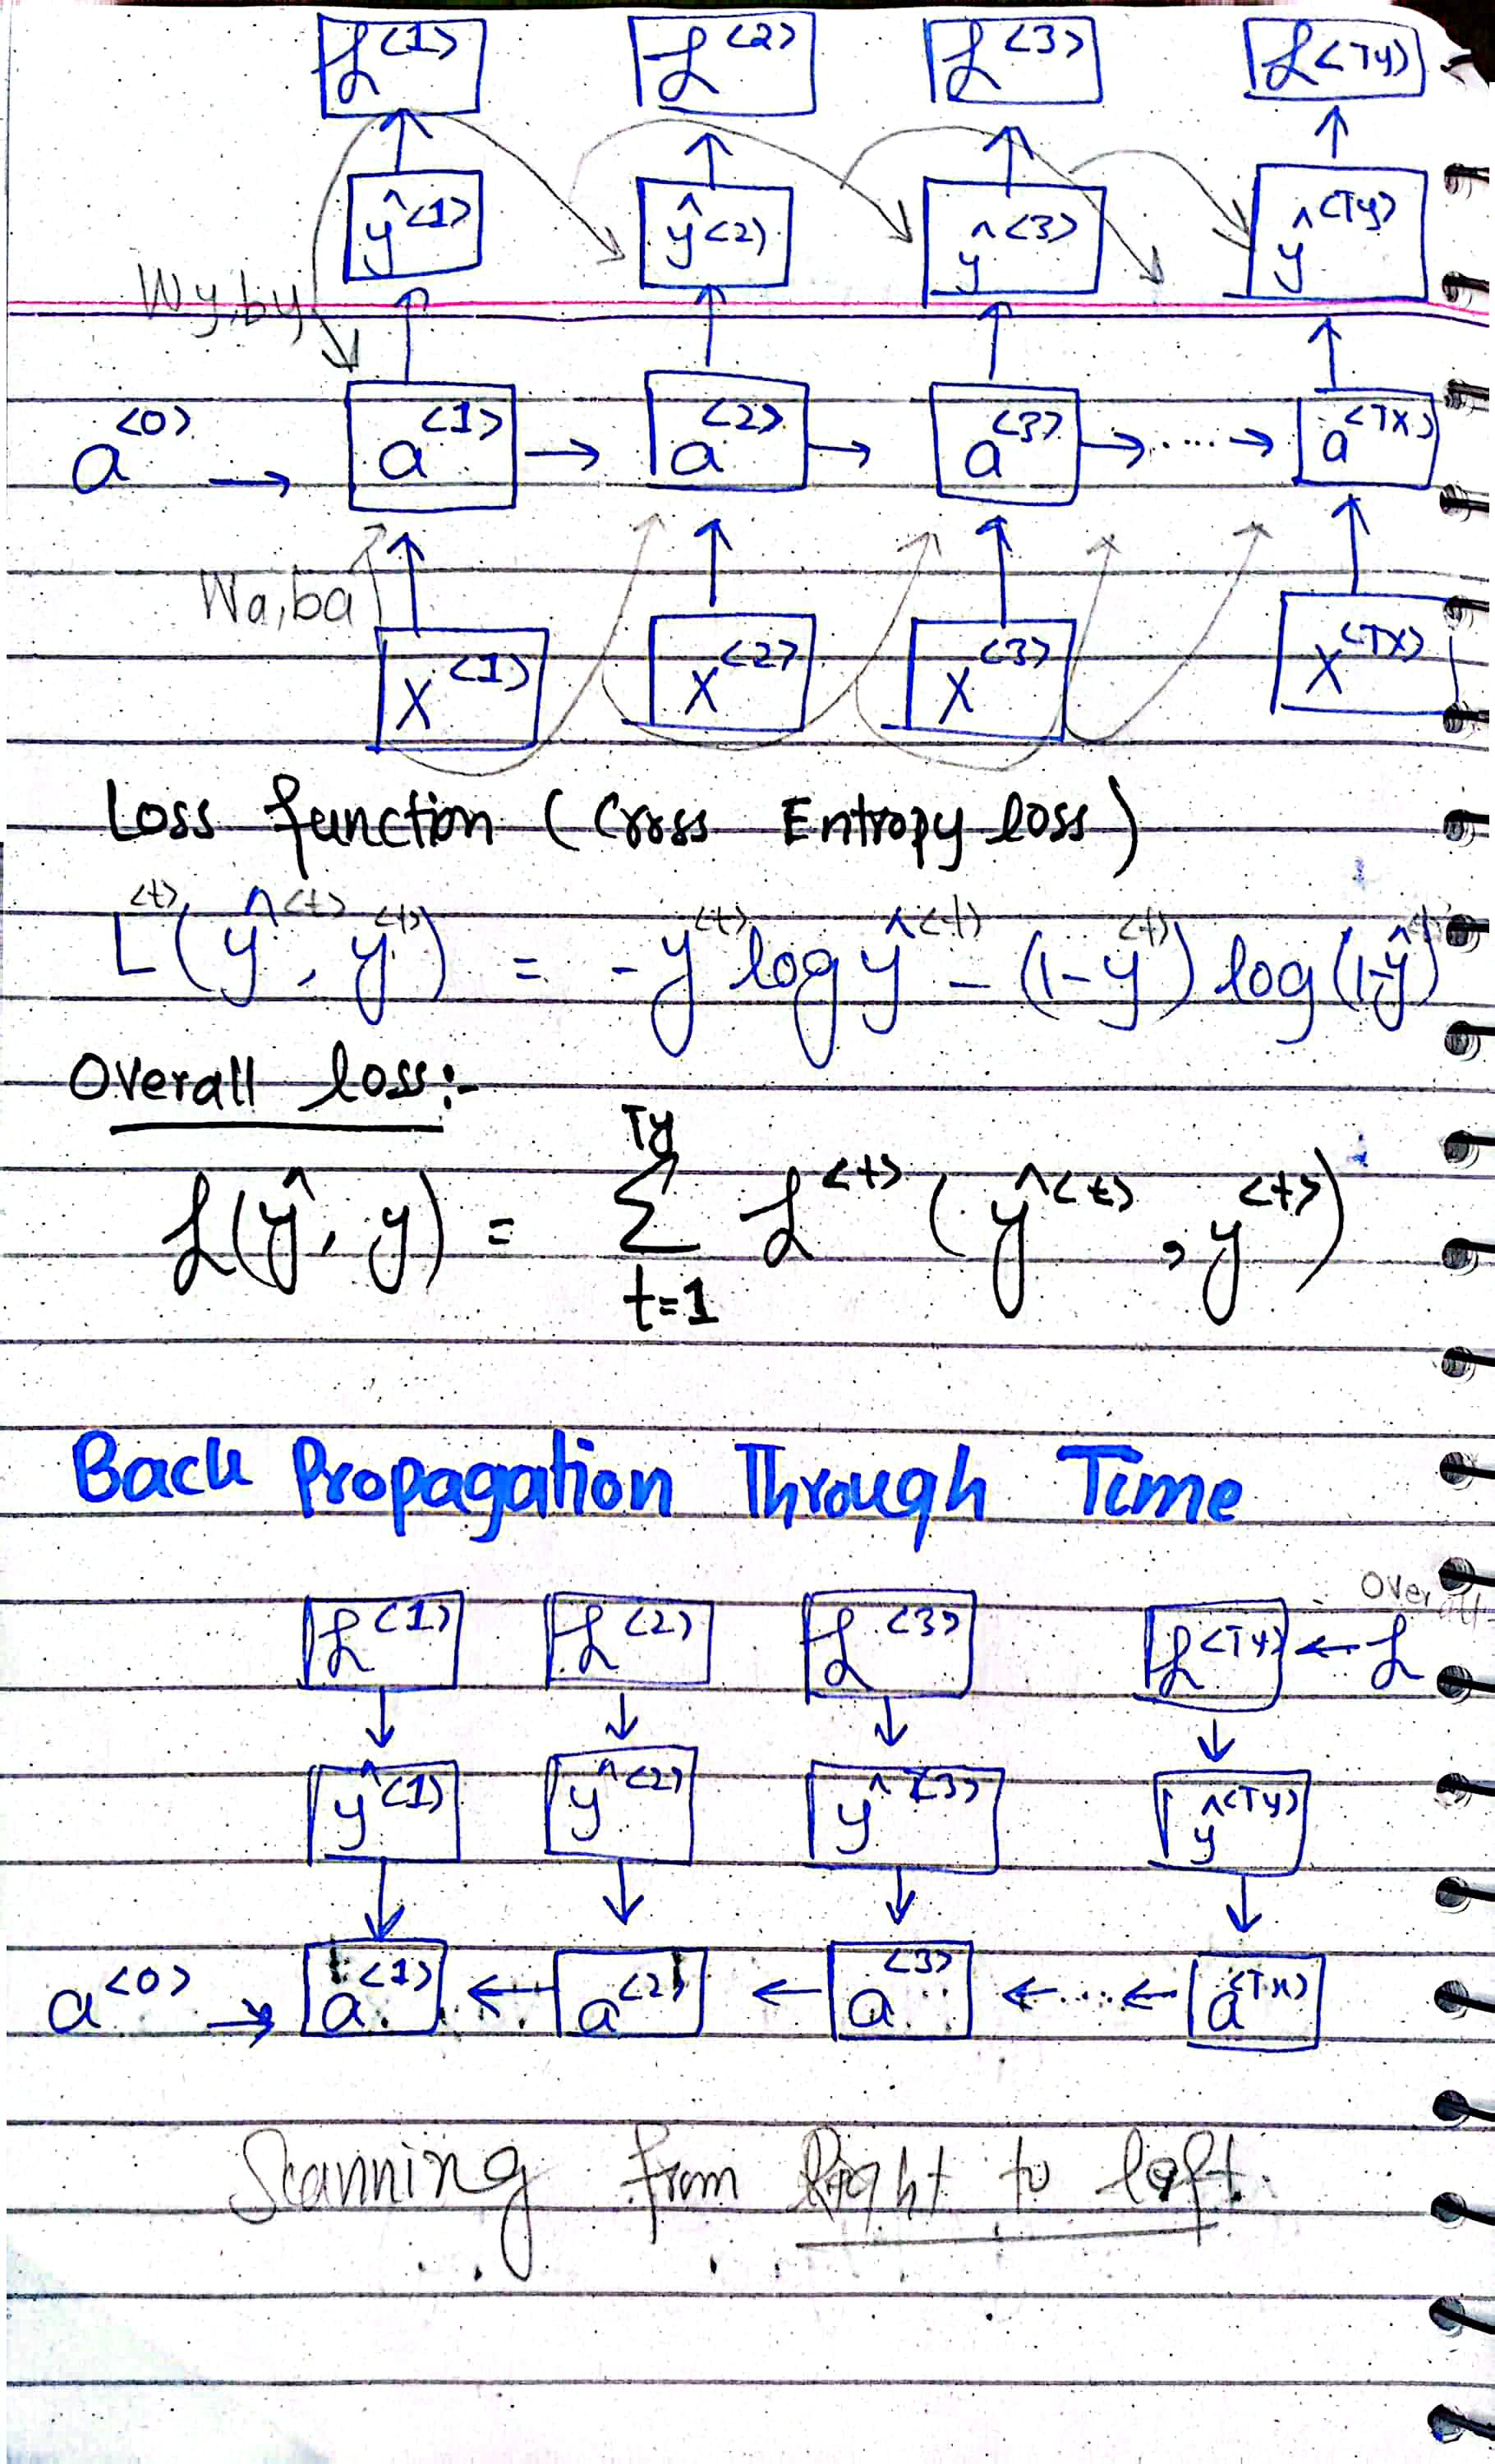 ℒ<1> ℒ<2> ℒ<3> ℒ<Ty>
ŷ<1> ŷ<2> ŷ<3> ŷ<Ty>
Wy,by
a<0> → a<1> → a<2> → a<3> → ..... → a<Tx>
Wa,ba
x<1> x<2> x<3> x<Tx>
Loss function (Cross Entropy loss)
L<t>(ŷ<t>, y<t>) = -y<t> log ŷ<t> - (1-y<t>) log(1-ŷ<t>)
Overall loss:-
ℒ(ŷ, y) = Σ t=1 Ty ℒ<t>(ŷ<t>, y<t>)
Back Propagation Through Time
Overall
ℒ<1> ℒ<2> ℒ<3> ℒ<Ty> ← ℒ
ŷ<1> ŷ<2> ŷ<3> ŷ<Ty>
a<0> → a<1> ← a<2> ← a<3> ← .... ← a<Tx>
Scanning from Right to left.